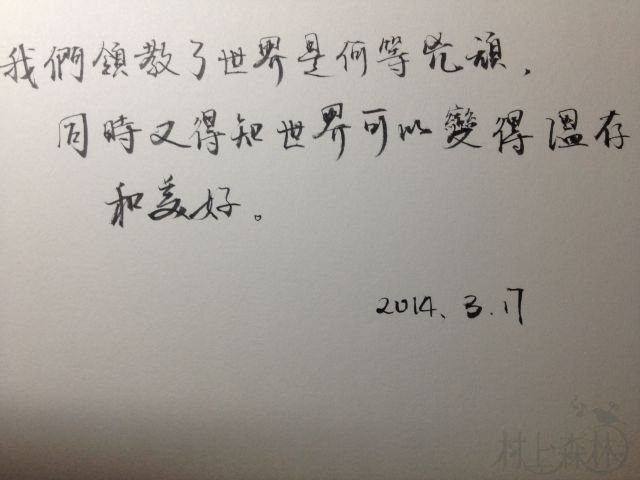 我們領教了世界是何等兇頑，
同時又得知世界可以變得溫存
和美好。
2014.3.17
村上森林